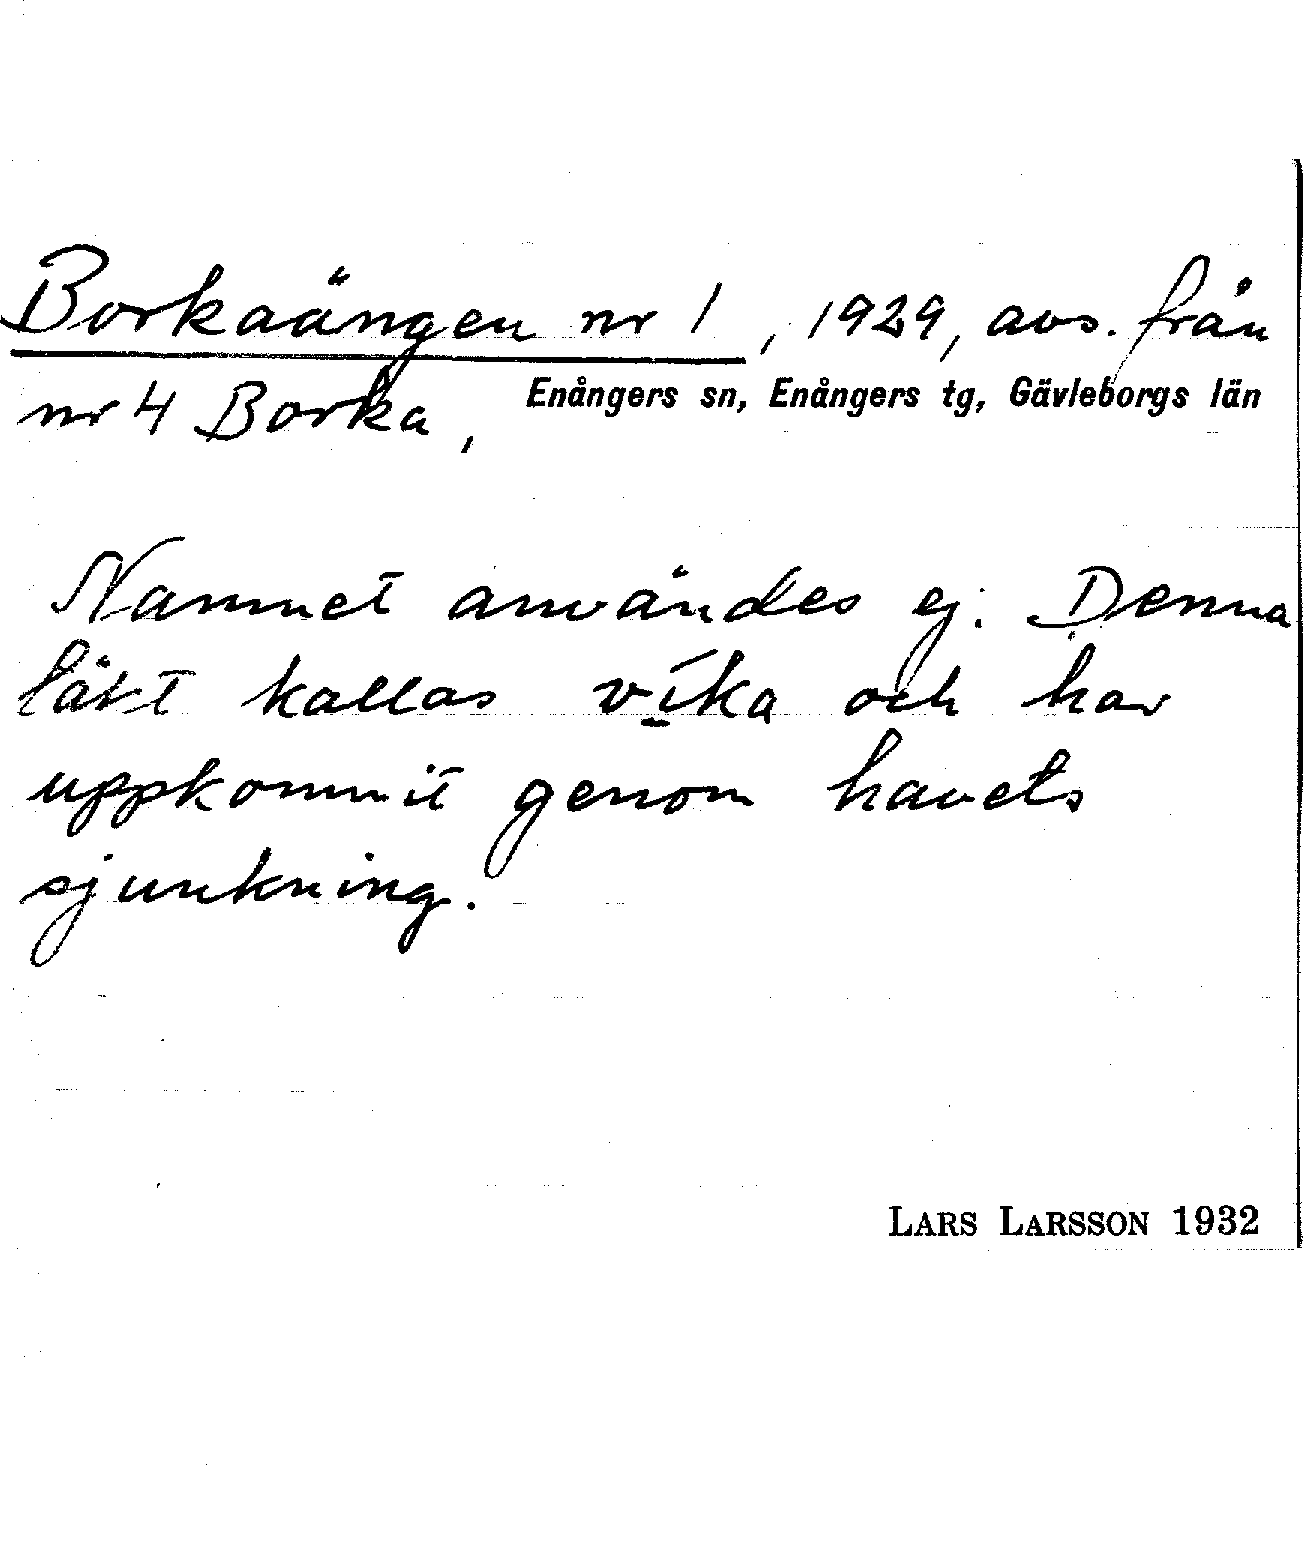 Borkaängen nr 1, 1929, avs. från
nr 4 Borka,
Enångers sn, Enångers tg, Gävleborgs län
Namnet användes ej. Denna
kallas víka och har
uppkommit genom havets
sjunkning.
LARS LARSSON 1932